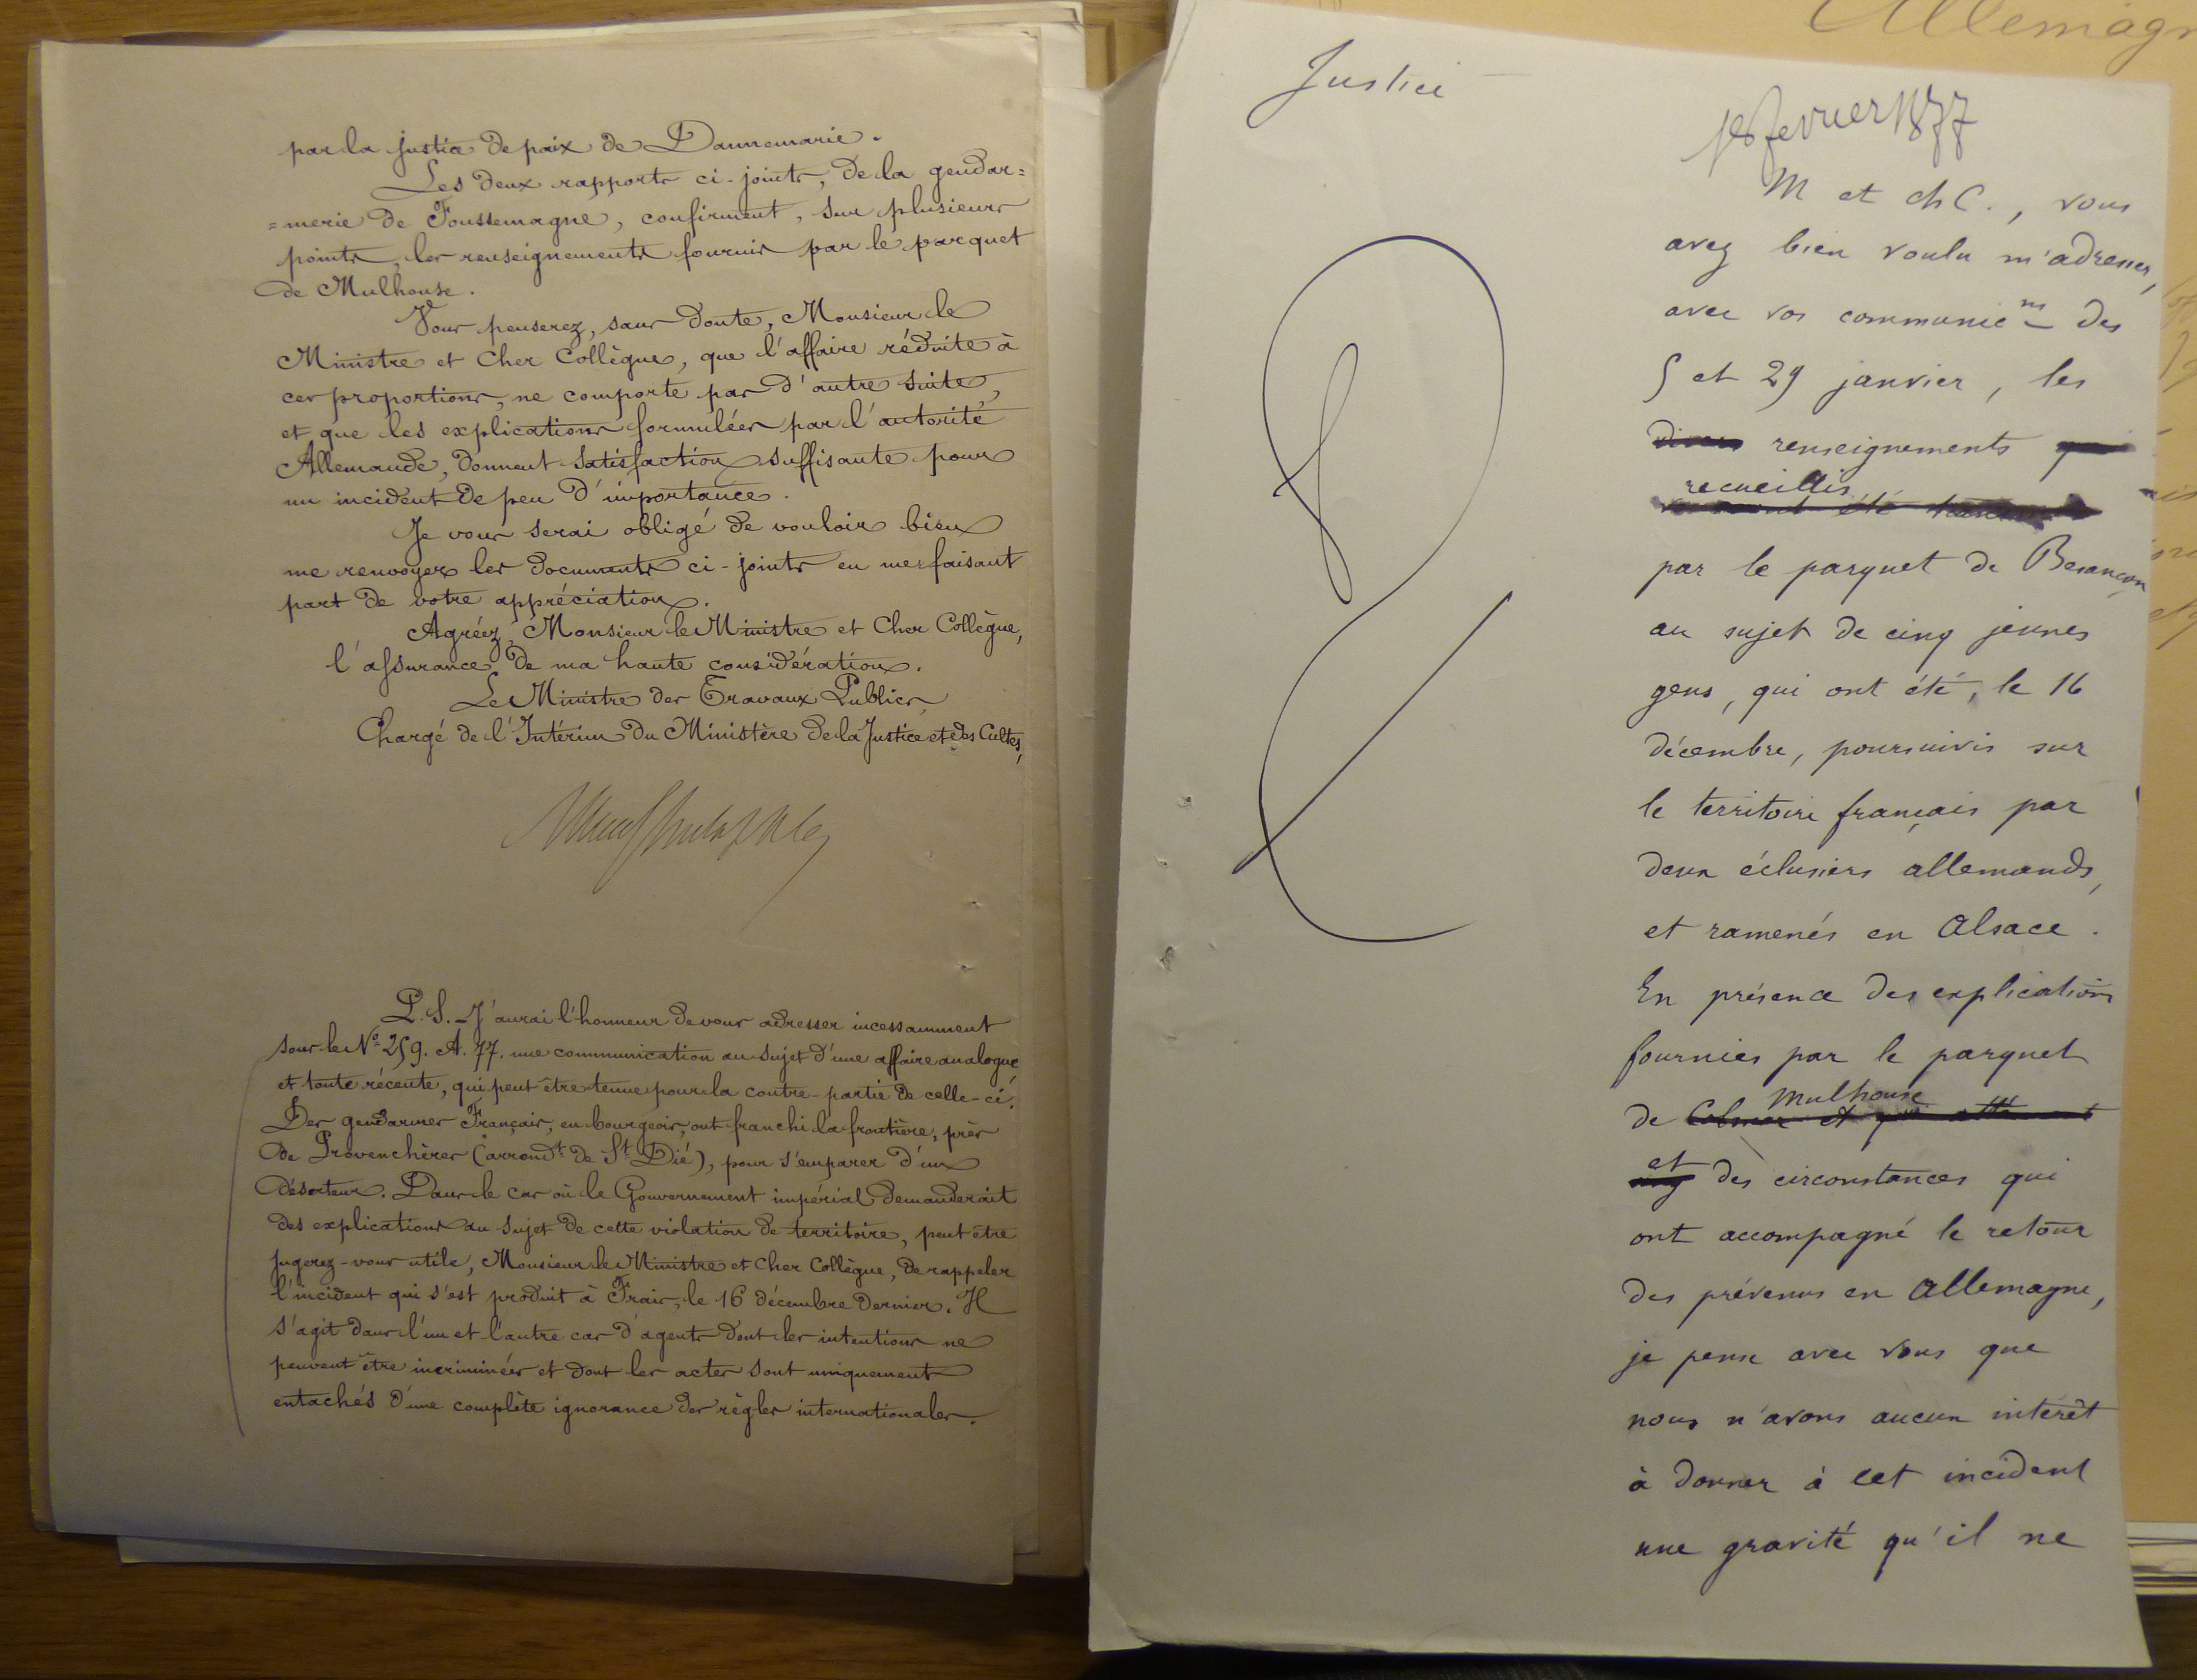 par la justice de paix de Dannemarie.
Les deux rapports ci-joints, de la gendar=
=merie de Foussemagne, confirment, sur plusieurs
points, les renseignements fournis par le parquet
de Mulhouse.
Vous penserez, sans doute, Monsieur le
Ministre et Cher Collègue, que l'affaire réduite à
ces proportions, ne comporte pas d'autre suite,
et que les explications formulées par l'autorité
Allemande, donnent satisfaction suffisante pour
un incident de peu d'importance.
Je vous serai obligé de vouloir bien
me renvoyer les documents ci-joints en me faisant
part de votre appréciation.
Agréez, Monsieur le Ministre et Cher Collègue,
l'assurance de ma haute considération.
Le Ministre des Travaux Publics,
Chargé de l'Intérim du Ministère de la Justice et des Cultes,
P.S. J'aurai l'honneur de vous adresser incessamment
sous le N° 259. A. 77. une communication au sujet d'une affaire analogue
et toute récente, qui peut être tenue pour la contre-partie de celle-ci.
Des gendarmes Français, en bourgeois, ont franchi la frontière, près
de Provenchères (arrondt de St Dié), pour s'emparer d'un
déserteur. Dans le cas où le Gouvernement impérial demanderait
des explications au sujet de cette violation de territoire, peut être
jugerez-vous utile, Monsieur le Ministre et Cher Collègue, de rappeler
l'incident qui s'est produit à Frais, le 16 décembre dernier. Il
s'agit dans l'un et l'autre cas d'agents dont les intentions ne
peuvent être incriminées et dont les actes sont uniquement
entachés d'une complète ignorance des règles internationales.
Allemagn
Justice
février 1877
M et ch C., vous
avez bien voulu m'adresser,
avec vos communicns des
5 et 29 janvier, les
divers renseignements
recueillis
été
par le parquet de Besançon
au sujet de cinq jeunes
gens, qui ont été, le 16
décembre, poursuivis sur
le territoire français par
deux éclusiers allemands,
et ramenés en Alsace.
En présence des explications
fournies par le parquet
Mulhouse
de Colmar et
et
des circonstances qui
ont accompagné le retour
des prévenus en Allemagne,
je pense avec vous que
nous n'avons aucun intérêt
à donner à cet incident
une gravité qu'il ne